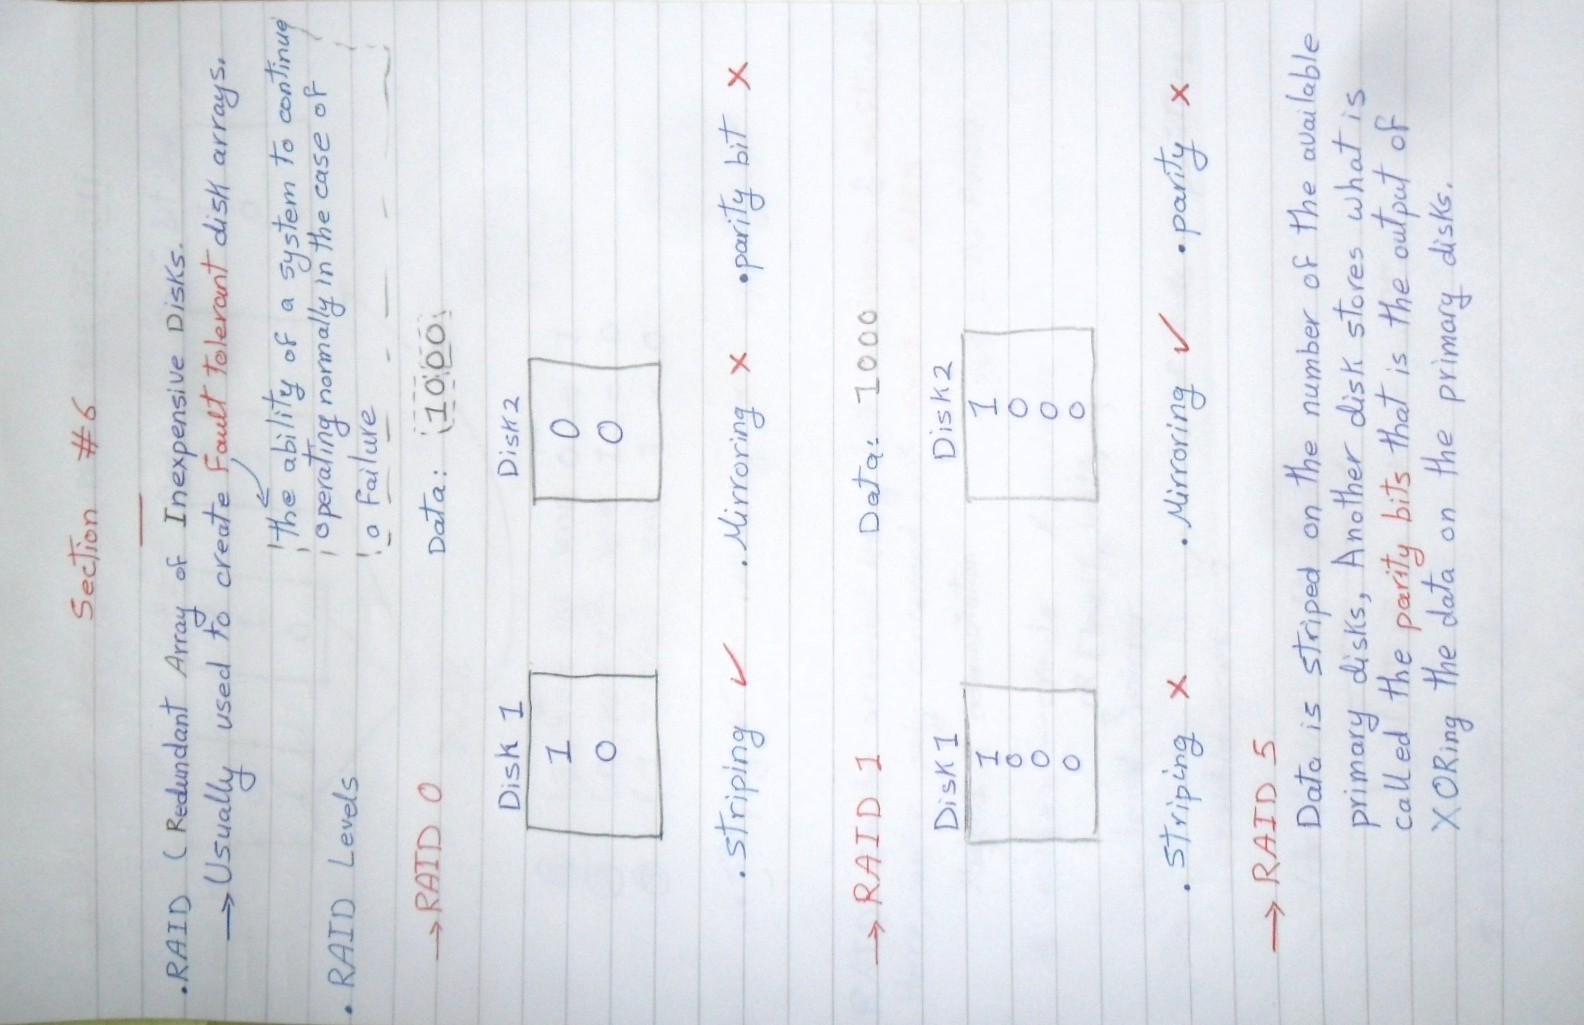 Section #6
.RAID (Redundant Array of Inexpensive Disks.
→ Usually used to create Fault tolerant disk arrays.
the ability of a system to continue
operating normally in the case of
a Failure
. RAID Levels
→ RAID 0 Data: 1000
Disk 1 Disk 2
1 0
0 0
. Striping ✓ . Mirroring ✗ . parity bit ✗
→ RAID 1 Data: 1000
Disk 1 Disk 2
1 1
0 0
0 0
0 0
. Striping ✗ . Mirroring ✓ . parity ✗
→ RAID 5
Data is striped on the number of the available
primary disks, Another disk stores what is
called the parity bits that is the output of
XORing the data on the primary disks.